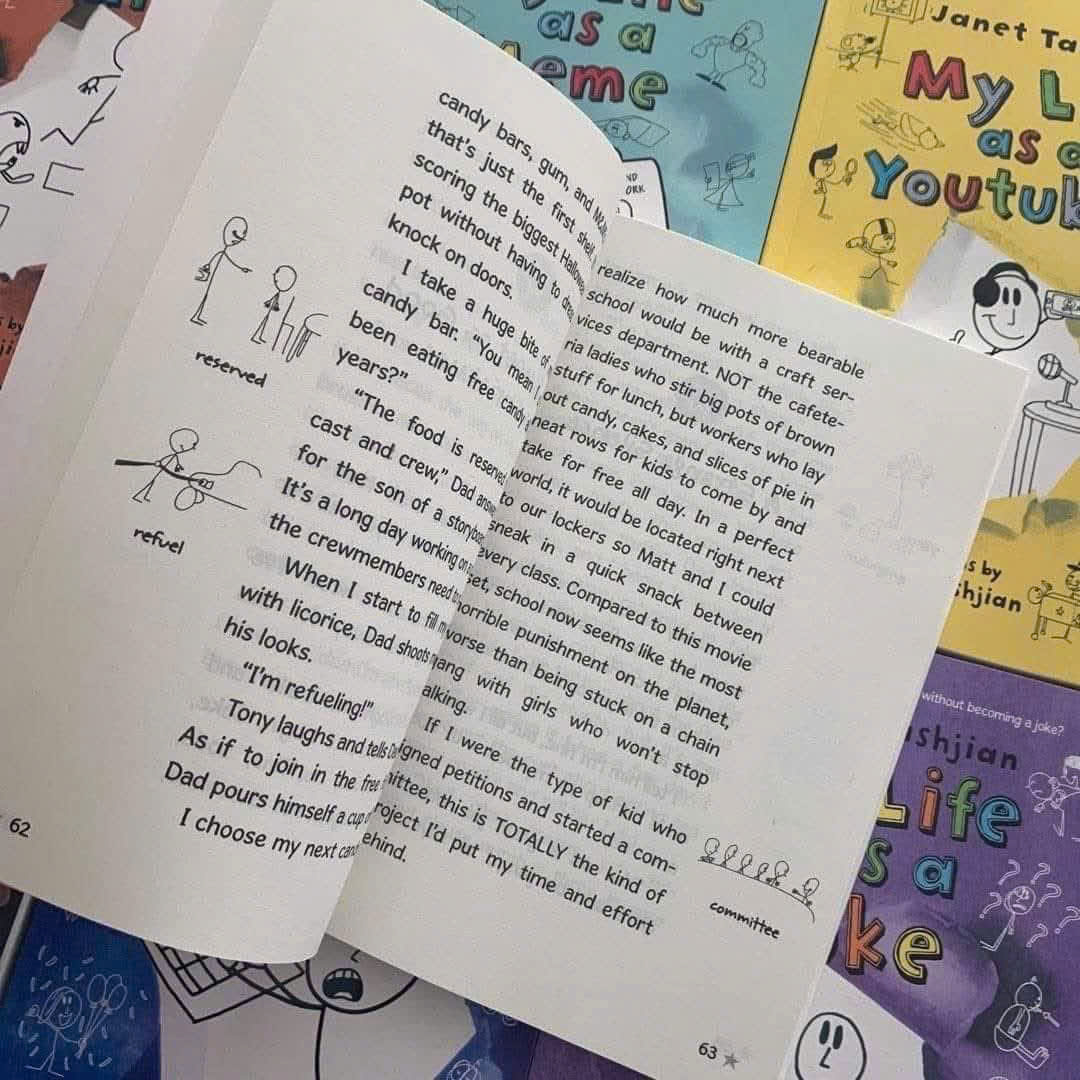 as a
eme
Janet Ta
My L
as a
Youtu
candy bars, gum, and
that's just the first shelf
scoring the biggest Hallowe
pot without having to
knock on doors.
I take a huge bite of
candy bar. "You mean I
been eating free candy
years?"
"The food is reserved
cast and crew," Dad
for the son of a
It's a long day working on
the crewmembers need
When I start to fill
with licorice, Dad shoots
his looks.
"I'm refueling!"
Tony laughs and tells
As if to join in the free
Dad pours himself a cup
I choose my next
reserved
refuel
62
realize how much more bearable
school would be with a craft ser-
vices department. NOT the cafete-
ria ladies who stir big pots of brown
stuff for lunch, but workers who lay
out candy, cakes, and slices of pie in
neat rows for kids to come by and
take for free all day. In a perfect
world, it would be located right next
to our lockers so Matt and I could
sneak in a quick snack between
every class. Compared to this movie
set, school now seems like the most
horrible punishment on the planet,
orse than being stuck on a chain
ang with girls who won't stop
alking.
If I were the type of kid who
igned petitions and started a com-
ittee, this is TOTALLY the kind of
roject I'd put my time and effort
ehind.
committee
63
s by
shjian
without becoming a joke?
shjian
Life
s a
ke